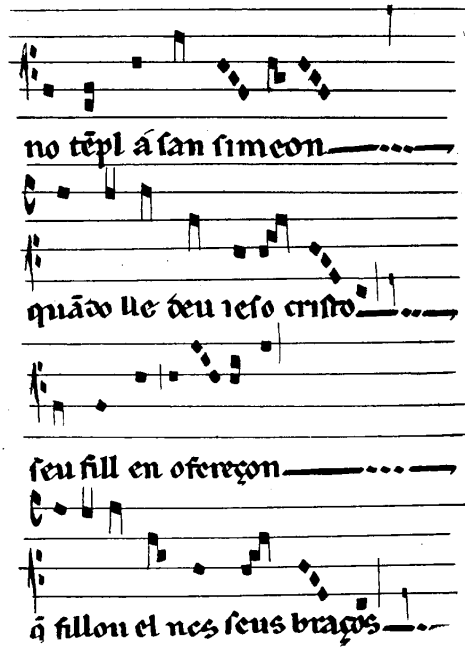 no tẽpl á san simeon
quãdo lle deu ieso cristo
seu fill en ofereçon
q̃ fillou el nes seus braços